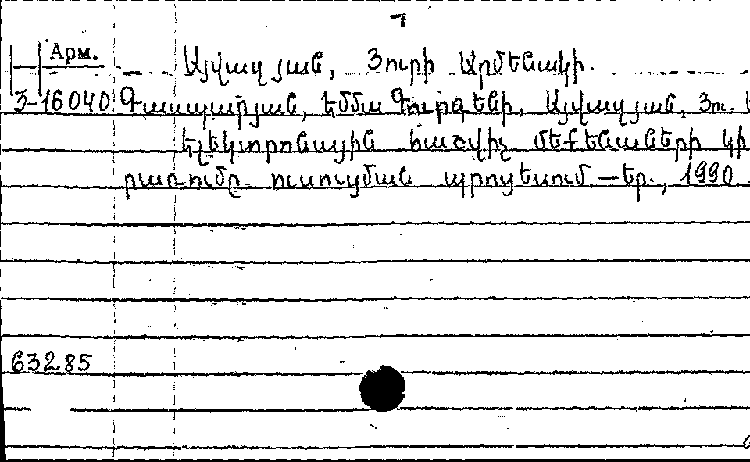 Арм.
Այվազյան, Յուրի Արմենակի.
3-16040 Գասպարյան, Էմմա Գուրգենի, Այվազյան, Յու.
Էլեկտրոնային հաշվիչ մեքենաների կի
րառումը ուսուցման պրոցեսում.—Եր., 1990
63285